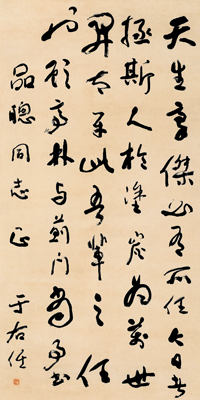 天生豪傑必有所任今日者
拯斯人於塗炭為萬世
開太平此吾輩之任
也顧亭林与薊門當事書
品聰同志正 于右任